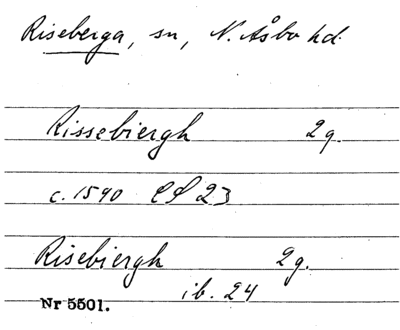 Riseberga, sn, N. Åsbo hd.
Rissebiergh 2g.
c. 1590 LP 23
Risebiergh 2g.
ib. 24
Nr 5501.